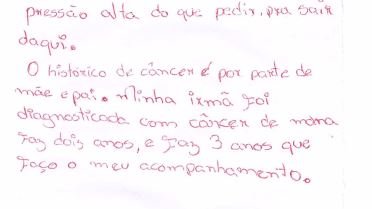 pressão alta do que pedir, pra sair
daqui.
O histórico de câncer é por parte de
mãe e pai. Minha irmã foi
diagnosticada com câncer de mama
faz dois anos, e faz 3 anos que
faço o meu acompanhamento.